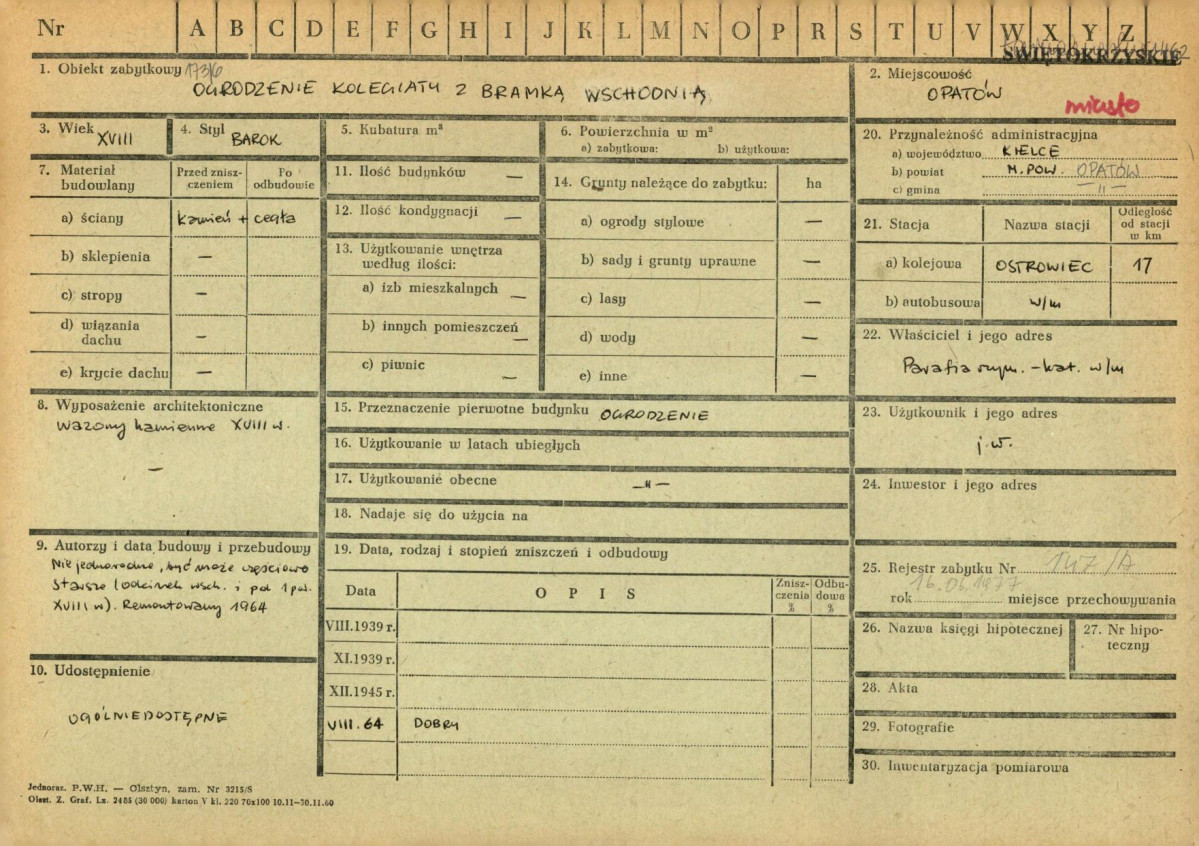 Nr A B C D E F G H I J K L M N O P R S T U V W X Y Z
ŚWIĘTOKRZYSKIE
1. Obiekt zabytkowy 173/6
OGRODZENIE KOLEGIATY Z BRAMKĄ WSCHODNIĄ
2. Miejscowość
OPATÓW
miasto
3. Wiek XVIII
4. Styl BAROK
5. Kubatura m³
6. Powierzchnia w m²
a) zabytkowa: b) użytkowa:
7. Materiał budowlany
Przed zniszczeniem
Po odbudowie
a) ściany kamień + cegła
b) sklepienia —
c) stropy —
d) wiązania dachu —
e) krycie dachu —
8. Wyposażenie architektoniczne
wazony kamienne XVIII w.
—
9. Autorzy i data budowy i przebudowy
Niejednorodne, być może częściowo
starsze (odcinek wsch. i pd 1 poł.
XVIII w). Remontowany 1964
10. Udostępnienie
OGÓLNIEDOSTĘPNE
11. Ilość budynków —
12. Ilość kondygnacji —
13. Użytkowanie wnętrza
według ilości:
a) izb mieszkalnych —
b) innych pomieszczeń —
c) piwnic —
14. Grunty należące do zabytku: ha
a) ogrody stylowe —
b) sady i grunty uprawne —
c) lasy —
d) wody —
e) inne —
15. Przeznaczenie pierwotne budynku OGRODZENIE
16. Użytkowanie w latach ubiegłych
17. Użytkowanie obecne —"—
18. Nadaje się do użycia na
19. Data, rodzaj i stopień zniszczeń i odbudowy
Data OPIS Zniszczenia % Odbudowa %
VIII.1939 r.
XI.1939 r.
XII.1945 r.
VIII.64 DOBRY
20. Przynależność administracyjna
a) województwo KIELCE
b) powiat M. POW. OPATÓW
c) gmina —"—
21. Stacja Nazwa stacji Odległość od stacji w km
a) kolejowa OSTROWIEC 17
b) autobusowa w/m
22. Właściciel i jego adres
Parafia rzym.-kat. w/m
23. Użytkownik i jego adres
j.w.
24. Inwestor i jego adres
25. Rejestr zabytku Nr 147/A
rok 16.06.1977 miejsce przechowywania
26. Nazwa księgi hipotecznej
27. Nr hipoteczny
28. Akta
29. Fotografie
30. Inwentaryzacja pomiarowa
Jednoraz. P.W.H. — Olsztyn, zam. Nr 3215/S
Olszt. Z. Graf. Lz. 2485 (30 000) karton V kl. 220 70x100 10.11—30.11.60